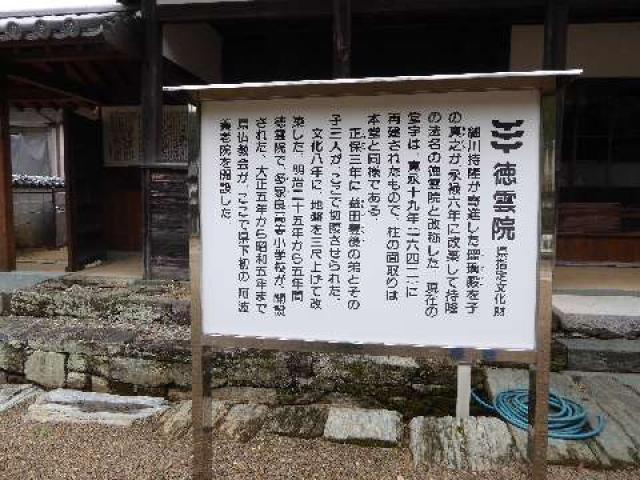 徳雲院 県指定文化財
細川持隆が寄進した瑠璃殿を子
の真之が永禄六年に改築して持隆
の法名の徳雲院と改称した 現在の
堂宇は 寛永十九年(一六四二)に
再建されたもので、柱の面取りは
本堂と同様である。
正保三年に 益田豊後の弟とその
子三人が、ここで切腹させられた。
文化八年に、地盤を三尺上げて改
築した。明治二十五年から五年間
徳雲院で、名東 高等小学校が、開設
された、大正五年から昭和五年まで
県仏教会が、ここで県下初の 阿波
養老院を開設した